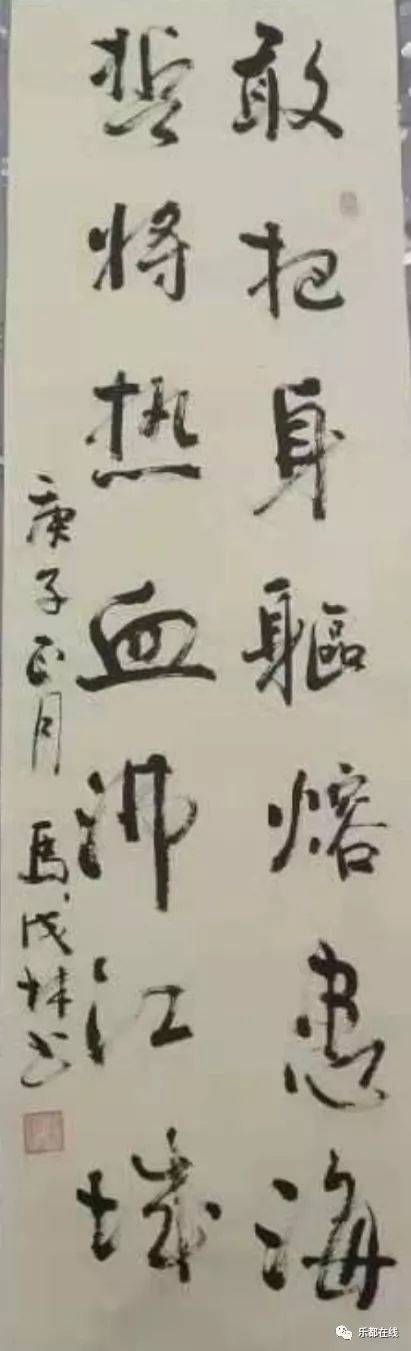 敢把身軀熔患海
誓将热血沸江城
庚子正月 馬成林书
乐都在线